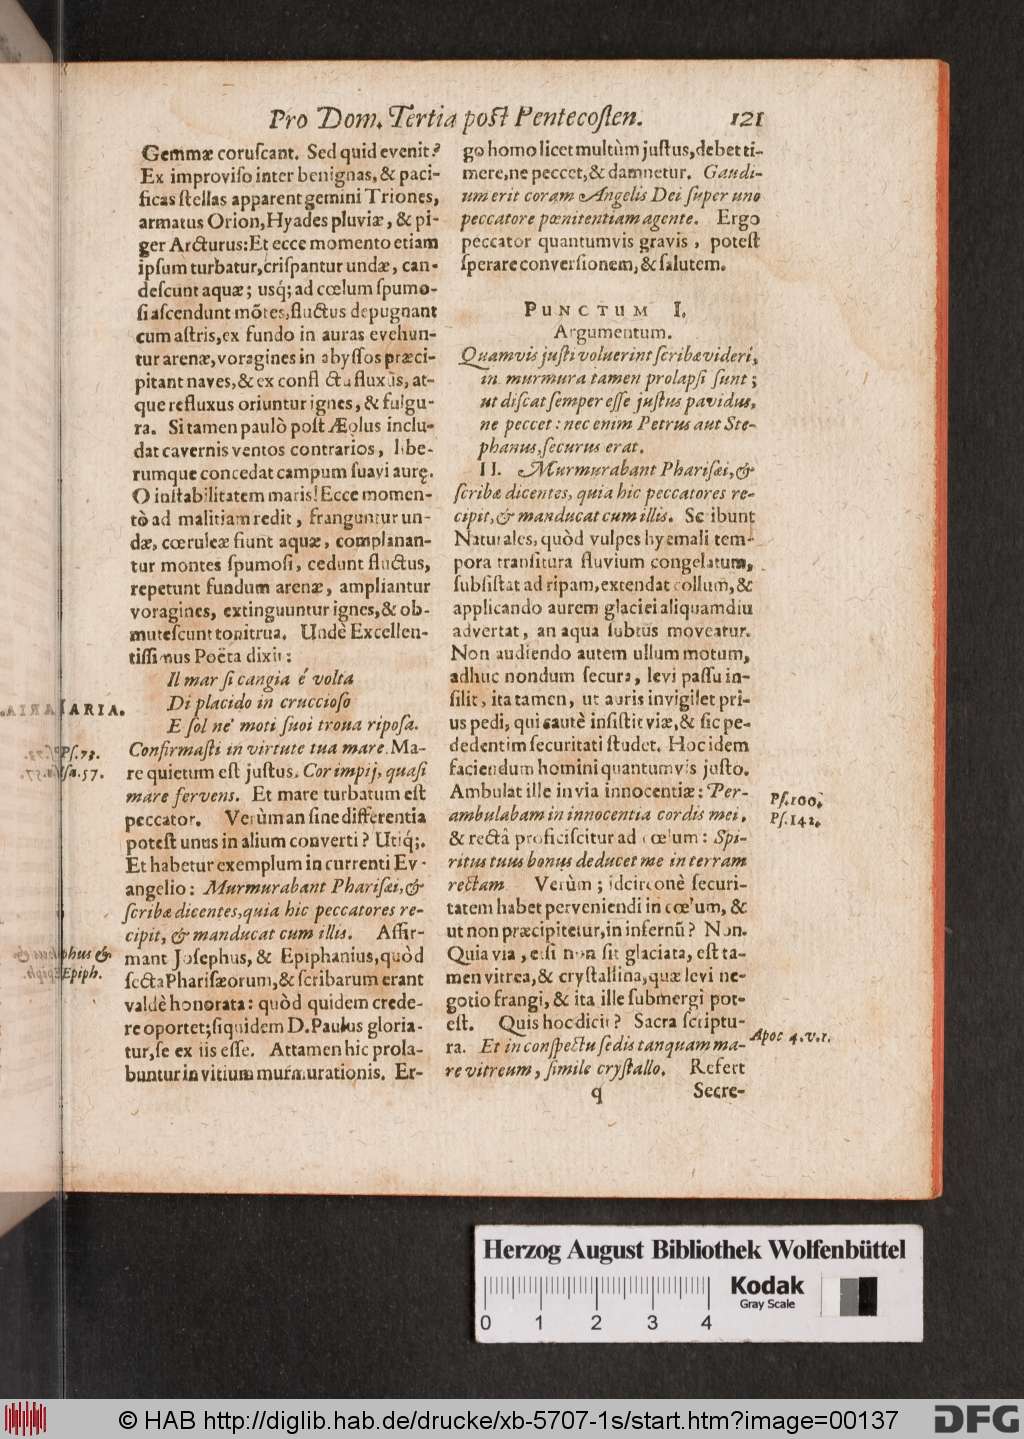 Pro Dom. Tertia post Pentecosten. 121
Gemmæ coruscant. Sed quid evenit?
Ex improviso inter benignas, & paci-
ficas stellas apparent gemini Triones,
armatus Orion, Hyades pluviæ, & pi-
ger Arcturus: Et ecce momento etiam
ipsum turbatur, crispantur undæ, can-
descunt aquæ; usq́; ad cœlum spumo-
si ascendunt mõtes, fluctus depugnant
cum astris, ex fundo in auras evehun-
tur arenæ, voragines in abyssos præci-
pitant naves, & ex confl ctu fluxûs, at-
que refluxus oriuntur ignes, & fulgu-
ra. Si tamen paulò post Æolus inclu-
dat cavernis ventos contrarios, libe-
rumque concedat campum suavi aurę. 
O instabilitatem maris! Ecce momen-
tò ad malitiam redit, franguntur un-
dæ, cœruleæ fiunt aquæ, complanan-
tur montes spumosi, cedunt fluctus,
repetunt fundum arenæ, ampliantur
voragines, extinguuntur ignes, & ob-
mutescunt tonitrua. Undè Excellen-
tissimus Poëta dixit:
Il mar si cangia é volta
Di placido in cruccioso
E sol ne' moti suoi troua riposa.
Confirmasti in virtute tua mare. Ma-
re quietum est justus. Cor impij, quasi
mare fervens. Et mare turbatum est
peccator. Verùm an sine differentia
potest unus in alium converti? Utiq́;.
Et habetur exemplum in currenti Ev-
angelio: Murmurabant Pharisæi, &
scribæ dicentes, quia hic peccatores re-
cipit, & manducat cum illis. Affir-
mant Josephus, & Epiphanius, quòd
secta Pharisæorum, & scribarum erant
valdè honorata: quòd quidem crede-
re oportet; siquidem D. Paulus gloria-
tur, se ex iis esse. Attamen hic prola-
buntur in vitium murmurationis. Er-
ARIA.
Ps. 73.
57.
phus &
Epiph.
go homo licet multùm justus, debet ti-
mere, ne peccet, & damnetur. Gaudi-
um erit coram Angelis Dei super uno
peccatore pœnitentiam agente. Ergo
peccator quantumvis gravis, potest
sperare conversionem, & salutem.
PUNCTUM I.
Argumentum.
Quamvis justi voluerint scribæ videri,
in murmura tamen prolapsi sunt;
ut discat semper esse justus pavidus,
ne peccet: nec enim Petrus aut Ste-
phanus, securus erat.
II. Murmurabant Pharisæi, &
scribæ dicentes, quia hic peccatores re-
cipit, & manducat cum illis. Sc ibunt
Naturales, quòd vulpes hyemali tem-
pora transitura fluvium congelatum,
subsistat ad ripam, extendat collum, &
applicando aurem glaciei aliquamdiu
advertat, an aqua subtùs moveatur.
Non audiendo autem ullum motum,
adhuc nondum secura, levi passu in-
silit, ita tamen, ut auris invigilet pri-
us pedi, qui cautè insistit viæ, & sic pe-
dedentim securitati studet. Hoc idem
faciendum homini quantumvis justo.
Ambulat ille in via innocentiæ: Per-
ambulabam in innocentia cordis mei.
& rectâ proficiscitur ad cœlum: Spi-
ritus tuus bonus deducet me in terram
rectam. Verùm; idcircone securi-
tatem habet perveniendi in cœlum, &
ut non præcipitetur, in infernũ? Non.
Quia via, etsi non sit glaciata, est ta-
men vitrea, & crystallina, quæ levi ne-
gotio frangi, & ita ille submergi pot-
est. Quis hoc dicit? Sacra scriptu-
ra. Et in conspectu sedis tanquam ma-
re vitreum, simile crystallo. Refert
q Secre-
Ps. 100.
Ps. 142.
Apoc 4. v. 1.
Herzog August Bibliothek Wolfenbüttel
Kodak
Gray Scale
0 1 2 3 4
© HAB http://diglib.hab.de/drucke/xb-5707-1s/start.htm?image=00137
DFG